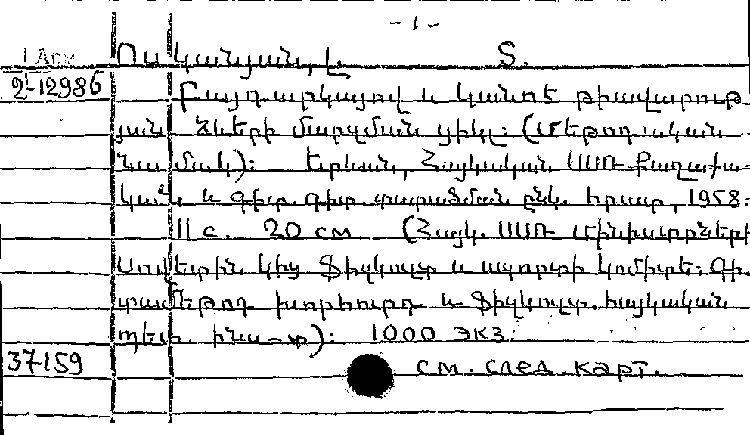 - 1 -
1 Арм Ոսկանյան, Լ. Տ.
2-12986 Բայդարկայով և կանոե թիավարութ
յան ձևերի մարզման ցիկլ: (Մեթոդական
նամակ): Երևան, Հայկական ՍՍՌ Քաղաքա
կան և գիտ. գիտ. տարածման ընկ. հրատ., 1958.
11 с. 20 см (Հայկ. ՍՍՌ Մինիստրների
Սովետին կից Ֆիզկուլտ և սպորտի կոմիտե: Գի
տամեթոդ խորհուրդ և Ֆիզկուլտ. հայկական
պետ. ինս-տ): 1000 экз.
37-159 см. след. карт.